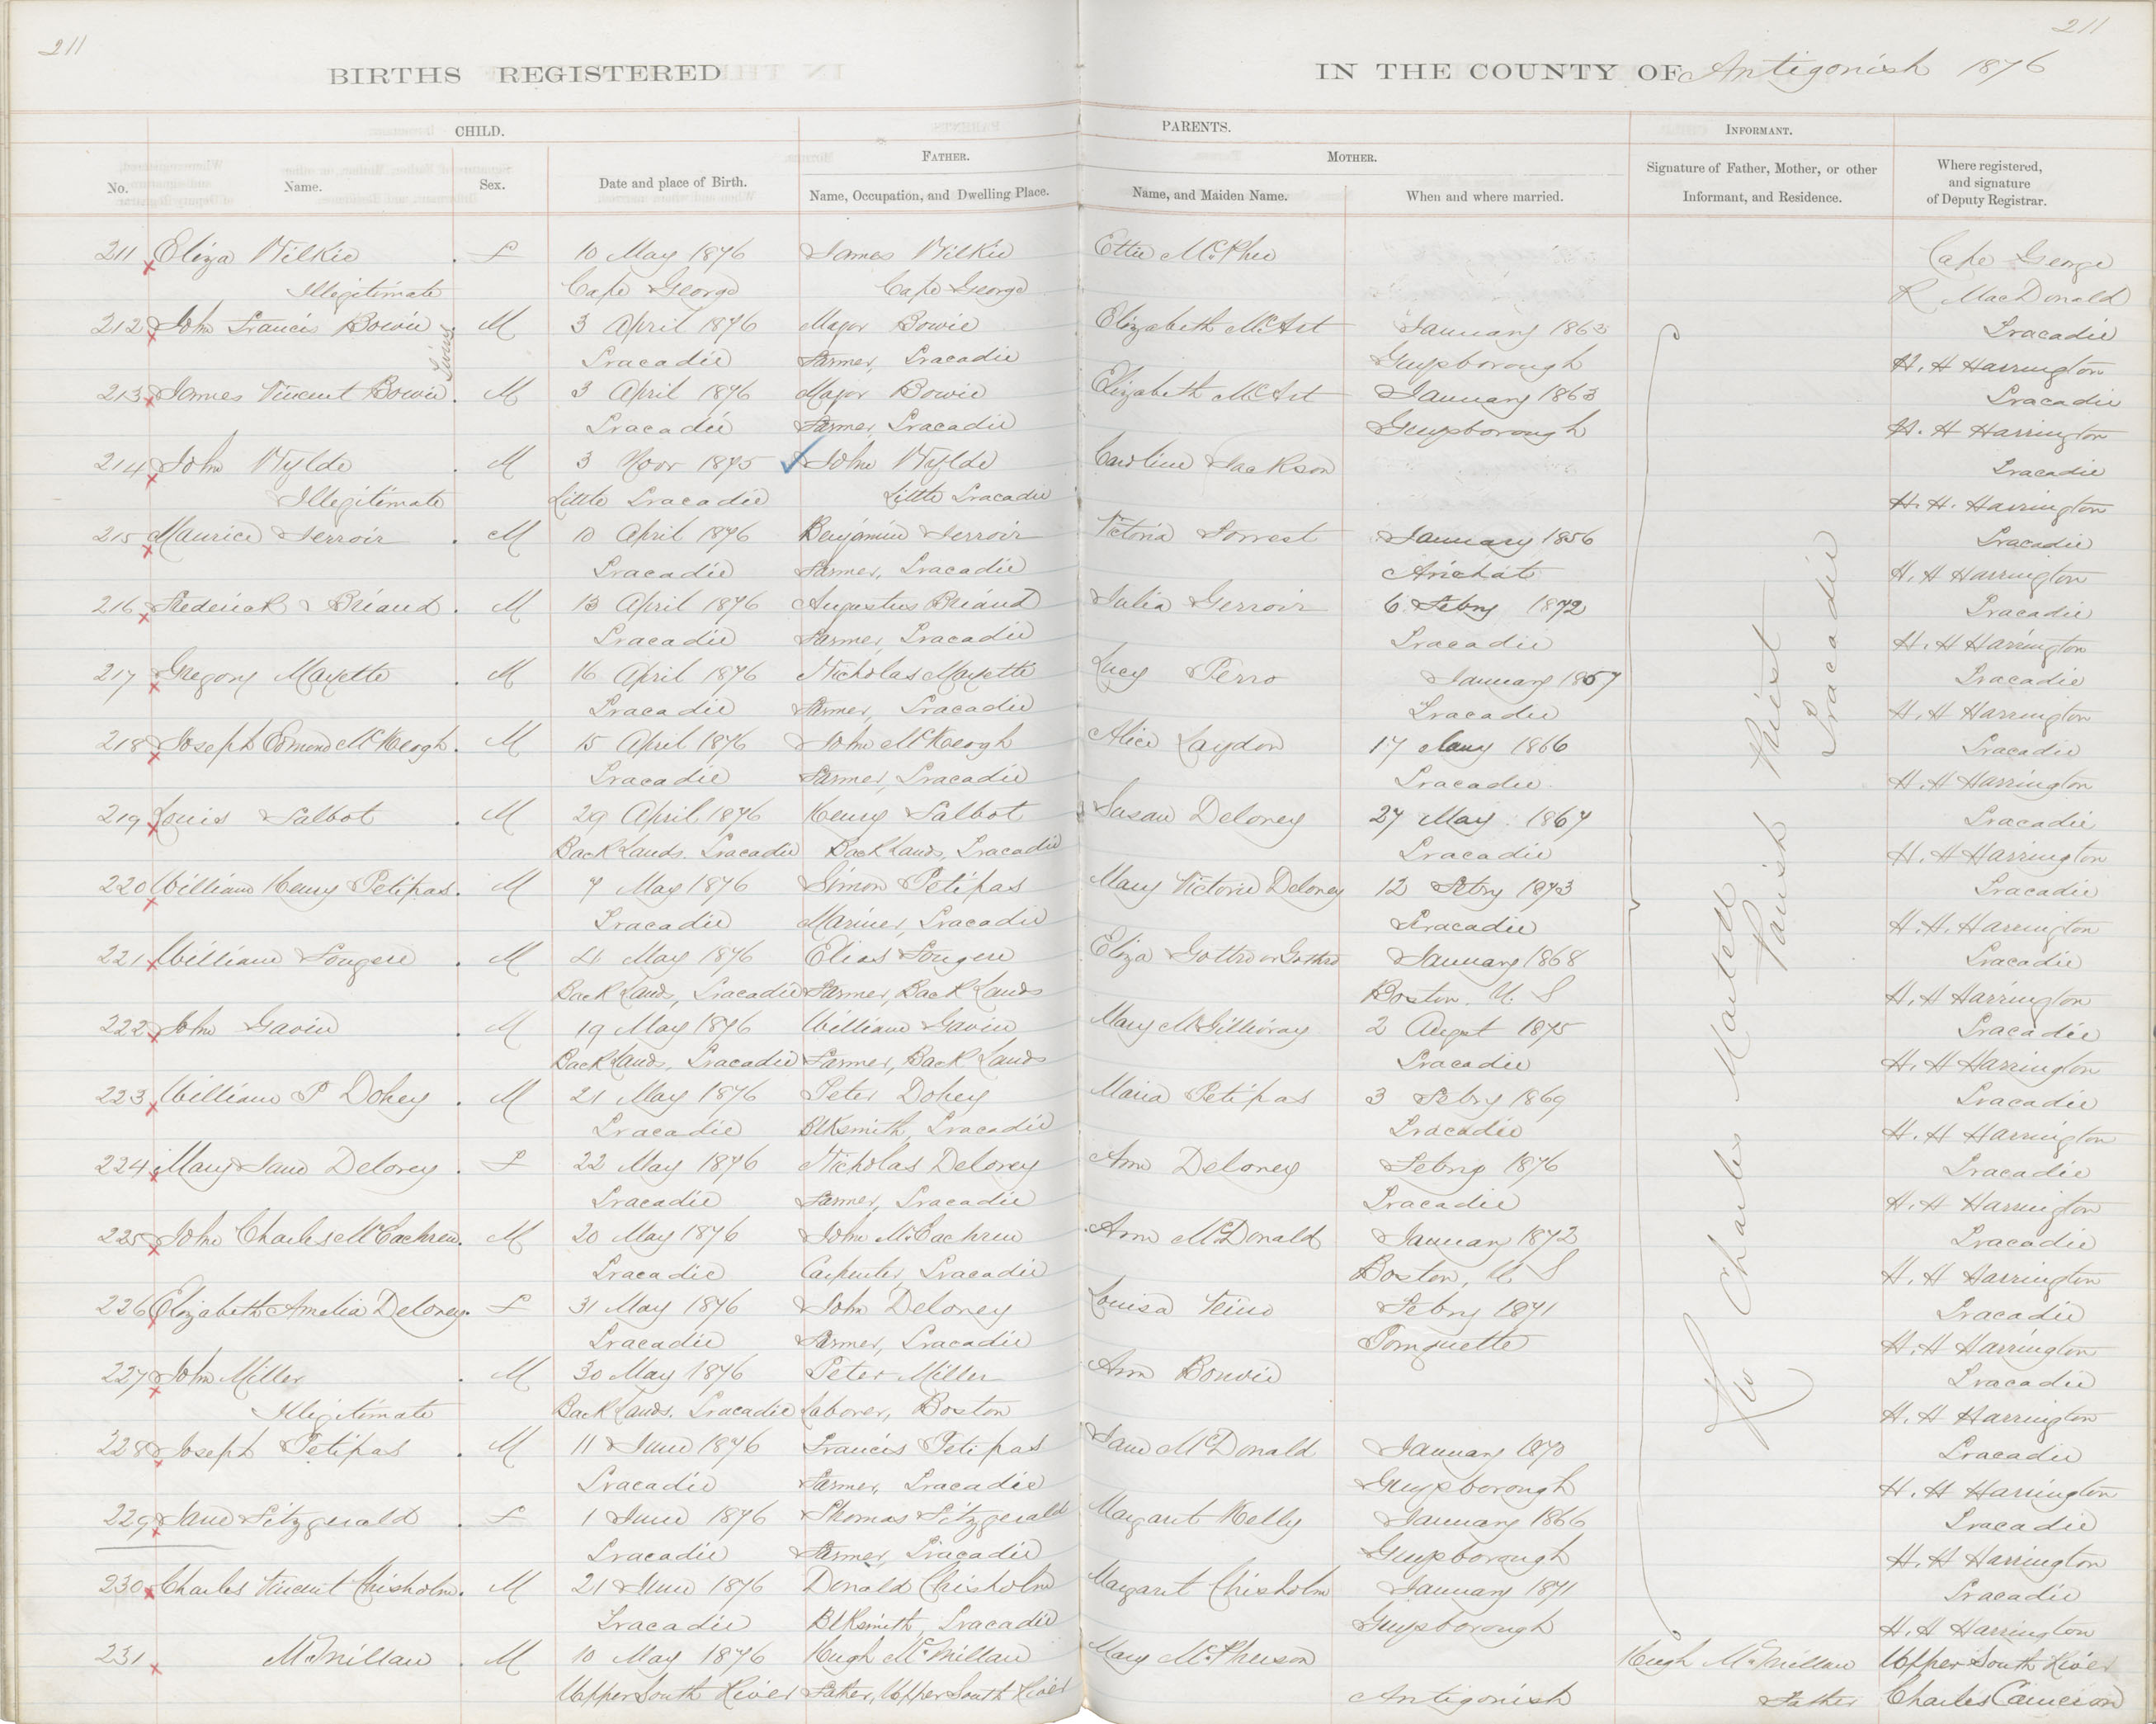 211
211
BIRTHS REGISTERED IN THE COUNTY OF Antigonish 1876
CHILD. PARENTS. INFORMANT.
FATHER. MOTHER.
No. Name. Sex. Date and place of Birth. Name, Occupation, and Dwelling Place. Name, and Maiden Name. When and where married. Signature of Father, Mother, or other Informant, and Residence. Where registered, and signature of Deputy Registrar.
211 Eliza Wilkie . F 10 May 1876 James Wilkie Ettie McPhee Cape George
Illegitimate Cape George Cape George R MacDonald
212 John Francis Bowie . M 3 April 1876 Major Bowie Elizabeth McAst January 1863 Tracadie
Tracadie Farmer, Tracadie Guysborough H. H Harrington
213 James Vincent Bowie . M 3 April 1876 Major Bowie Elizabeth McAst January 1863 Tracadie
Tracadie Farmer, Tracadie Guysborough H. H Harrington
214 John Wylde . M 3 Novr 1875 John Wylde Caroline Jackson Tracadie
Illegitimate Little Tracadie Little Tracadie H. H. Harrington
215 Maurice Gerroir . M 10 April 1876 Benjamin Gerroir Victoria Forrest January 1856 Tracadie
Tracadie Farmer, Tracadie Arichat H. H Harrington
216 Frederick Briand . M 13 April 1876 Augustus Briand Julia Gerroir 6 Febry 1872 Tracadie
Tracadie Farmer, Tracadie Tracadie H. H Harrington
217 Gregory Mayette . M 16 April 1876 Nicholas Mayette Lucy Perro January 1857 Tracadie
Tracadie Farmer, Tracadie Tracadie H. H Harrington
218 Joseph Edmond McKeogh . M 15 April 1876 John McKeogh Alice Laydon 17 Jany 1866 Tracadie
Tracadie Farmer, Tracadie Tracadie H. H Harrington
219 Louis Talbot . M 29 April 1876 Henry Talbot Susan Delorey 27 May 1867 Tracadie
Back Lands. Tracadie Back Lands, Tracadie Tracadie H. H Harrington
220 William Henry Petipas . M 7 May 1876 Simon Petipas Mary Victorie Delorey 12 Febry 1873 Tracadie
Tracadie Mariner, Tracadie Tracadie H. H. Harrington
221 William Fougere . M 21 May 1876 Elias Fougere Eliza January 1868 Tracadie
Back Lands, Tracadie Farmer, Back Lands Boston. U. S H. H Harrington
222 John Gavin . M 19 May 1876 William Gavin Mary McGillivray 2 August 1875 Tracadie
Back Lands, Tracadie Farmer, Back Lands Tracadie H. H Harrington
223 William P Dohey . M 21 May 1876 Peter Dohey Maria Petipas 3 Febry 1869 Tracadie
Tracadie Blksmith, Tracadie Tracadie H. H Harrington
224 Mary Jane Delorey . F 22 May 1876 Nicholas Delorey Ann Delorey Febry 1876 Tracadie
Tracadie Farmer, Tracadie Tracadie H. H Harrington
225 John Charles McEachren . M 20 May 1876 John McEachren Ann McDonald January 1872 Tracadie
Tracadie Carpenter, Tracadie Boston, U. S H. H Harrington
226 Elizabeth Amelia Delorey . F 31 May 1876 John Delorey Louisa Febry 1871 Tracadie
Tracadie Farmer, Tracadie Pomquette H. H Harrington
227 John Miller . M 30 May 1876 Peter Miller Ann Bonvie Tracadie
Illegitimate Back Lands. Tracadie Laborer, Boston H. H Harrington
228 Joseph Petipas . M 11 June 1876 Francis Petipas Jane McDonald January 1870 Tracadie
Tracadie Farmer, Tracadie Guysborough H. H Harrington
229 Jane Fitzgerald . F 1 June 1876 Thomas Fitzgerald Margaret Kelly January 1866 Tracadie
Tracadie Farmer, Tracadie Guysborough H. H Harrington
230 Charles Vincent Chisholm . M 21 June 1876 Donald Chisholm Margaret Chisholm January 1871 Tracadie
Tracadie Blksmith, Tracadie Guysborough H. H Harrington
231 McMillan . M 10 May 1876 Hugh McMillan Mary McPherson Hugh McMillan Upper South River
Upper South River Father, Upper South River Antigonish Father Charles Cameron
Charles Martell
Parish Priest
Tracadie